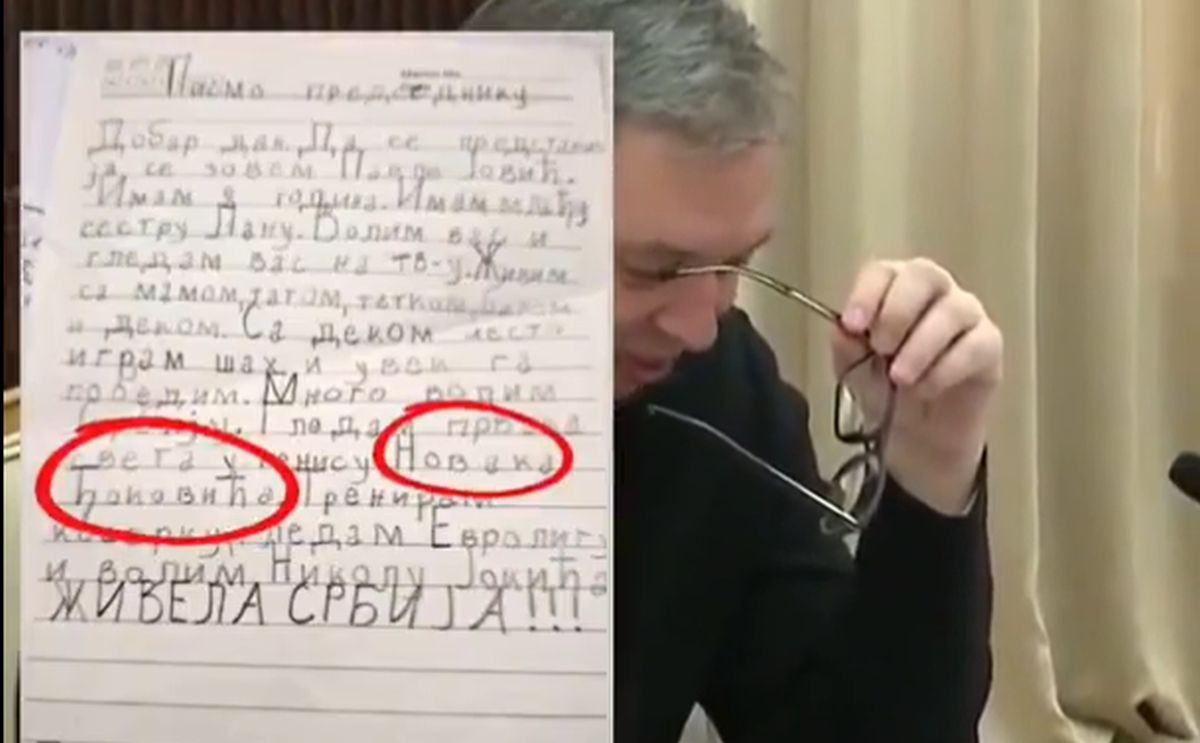 Писмо председнику
Добар дан. Да се представим
ја се зовем Павле Јовић.
Имам 8 година. Имам млађу
сестру Лану. Волим вас и
гледам вас на тв-у. Живим
са мамом, татом, тетком, баком
и деком. Са деком често
играм шах и увек га
победим. Много волим
Гледам првака
света у тенису Новака
Ђоковића Тренирам
кошарку. Гледам Евролигу
и волим Николу Јокића
ЖИВЕЛА СРБИЈА!!!